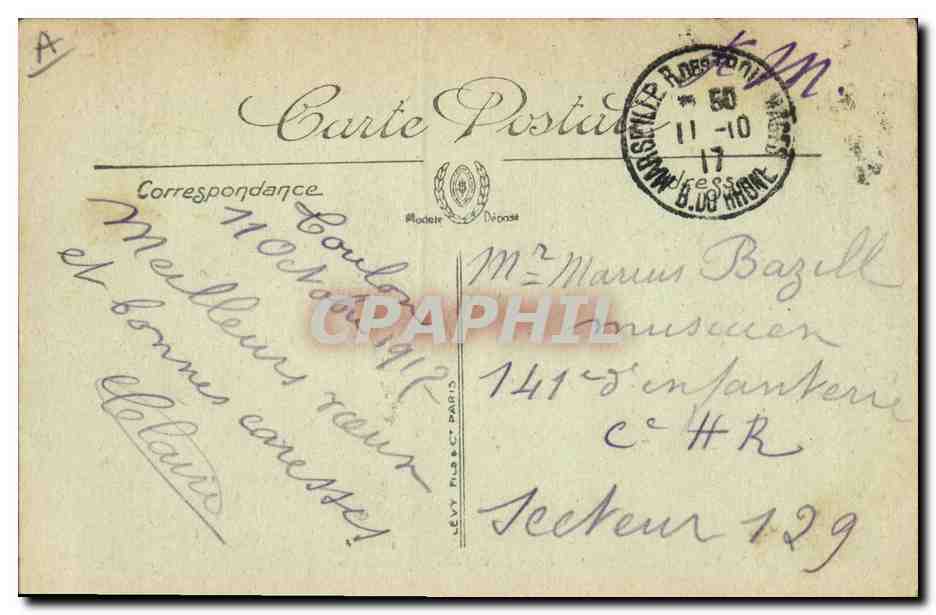 A
F M.
Carte Postale
MARSEILLE R. DES TROIS MAGES
* 50
11 -10
17
B. DU RHONE
Correspondance
Adresse
Modèle Déposé
Toulon
11 Octobre 1917
Meilleurs vœux
et bonnes caresses
Claire
CPAPHIL
LEVY FILS & Cie PARIS
Mr Marius Bazill
musicien
141e d'infanterie
Cie H R
Secteur 129